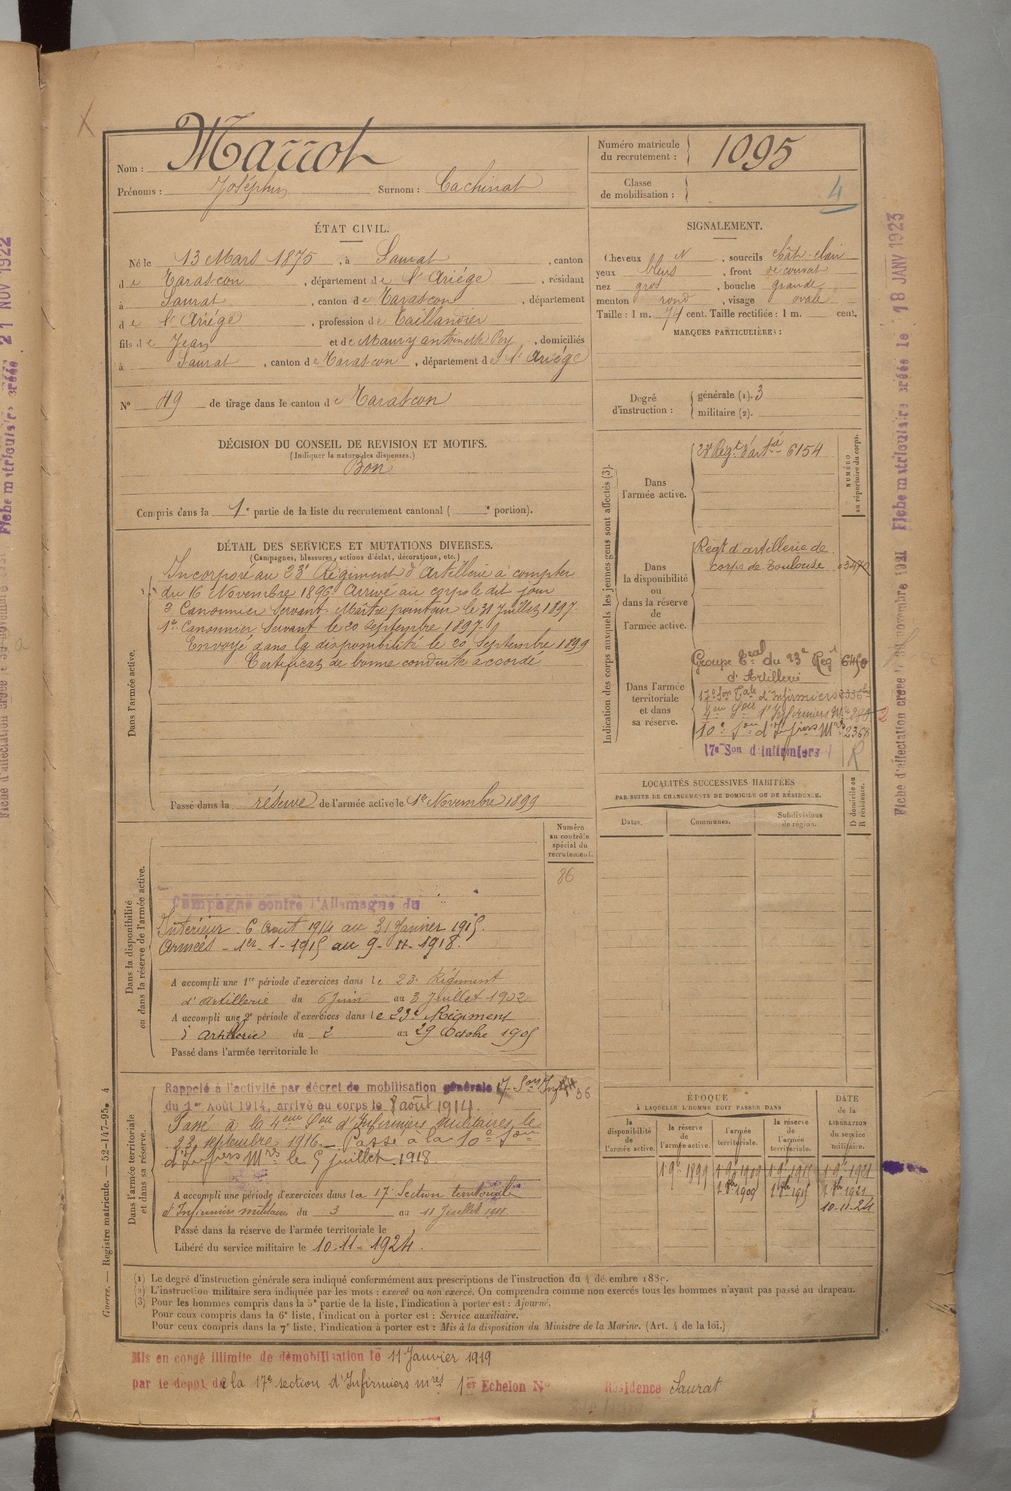 Marrot
Nom :
Prénoms : Joséphin Surnom : Cachinat
Numéro matricule du recrutement : 1095
Classe de mobilisation :
4
ÉTAT CIVIL.
Né le 13 Mars 1875, à Saurat, canton
de Tarascon, département de l'Ariège, résidant
à Saurat, canton de Tarascon, département
de l'Ariège, profession de Taillandier
fils de Jean et de Maury antoinette, domiciliés
à Saurat, canton de Tarascon, département de l'Ariège
N° 49 de tirage dans le canton de Tarascon
SIGNALEMENT.
Cheveux N, sourcils chât. clair
yeux bleus, front découvert
nez gros, bouche grande
menton rond, visage ovale
Taille : 1 m. 74 cent. Taille rectifiée : 1 m. cent.
MARQUES PARTICULIÈRES :
Degré d'instruction : générale (1). 3
militaire (2).
DÉCISION DU CONSEIL DE REVISION ET MOTIFS.
(Indiquer la nature des dispenses.)
Bon
Compris dans la 1e partie de la liste du recrutement cantonal ( e portion).
DÉTAIL DES SERVICES ET MUTATIONS DIVERSES.
(Campagnes, blessures, actions d'éclat, décorations, etc.)
Dans l'armée active.
Incorporé au 23e Régiment d'Artillerie à compter
du 16 Novembre 1896 Arrivé au corps le dit jour
2e Canonnier Servant Maître pointeur le 31 Juillet 1897
1er Canonnier Servant le 20 Septembre 1897
Envoyé dans la disponibilité le 20 Septembre 1899
Certificat de bonne conduite accordé
Passé dans la réserve de l'armée active le 1er Novembre 1899
Indication des corps auxquels les jeunes gens sont affectés (3).
NUMÉRO au répertoire du corps.
Dans l'armée active.
23e Régt d'artie 6154
Dans la disponibilité ou dans la réserve de l'armée active.
Régt d'artillerie de
corps de Toulouse
Dans l'armée territoriale et dans sa réserve.
Groupe Tral du 23e Régt
d'Artillerie
17e Son Tale d'Infirmiers
4eme Son d'Infirmiers
10e Son d'Infiers Mres 2366
17e Son d'Infirmiers
R
LOCALITÉS SUCCESSIVES HABITÉES
PAR SUITE DE CHANGEMENTS DE DOMICILE OU DE RÉSIDENCE.
Dates. Communes. Subdivisions de région. D domicile ou R résidence.
Dans la disponibilité ou dans la réserve de l'armée active.
Numéro au contrôle spécial du recrutement.
86
Campagne contre l'Allemagne du
Intérieur 6 Août 1914 au 31 Janvier 1915.
Armées 1er-1-1915 au 9-11-1918
A accompli une 1re période d'exercices dans le 23e Régiment
d'Artillerie du 6 Juin au 3 Juillet 1902
A accompli une 2e période d'exercices dans le 23e Régiment
d'Artillerie du 2 au 29 Octobre 1905
Passé dans l'armée territoriale le
Dans l'armée territoriale et dans sa réserve.
Rappelé à l'activité par décret de mobilisation générale
du 1er Août 1914, arrivé au corps le 8 août 1914.
Passé à la 4eme Son d'Infirmiers Militaires le
septembre 1916. Passé à la 10e Son
d'Infiers Mres le 5 juillet 1918
A accompli une période d'exercices dans la 17e Section territoriale
d'Infirmiers militaires du 3 au 11 Juillet 1911
Passé dans la réserve de l'armée territoriale le
Libéré du service militaire le 10-11-1924.
ÉPOQUE
À LAQUELLE L'HOMME DOIT PASSER DANS
la disponibilité de l'armée active. la réserve de l'armée active. l'armée territoriale. la réserve de l'armée territoriale.
DATE de la LIBÉRATION du service militaire.
10-11-24
(1) Le degré d'instruction générale sera indiqué conformément aux prescriptions de l'instruction du 4 décembre 1889.
(2) L'instruction militaire sera indiquée par les mots : exercé ou non exercé. On comprendra comme non exercés tous les hommes n'ayant pas passé au drapeau.
(3) Pour les hommes compris dans la 5e partie de la liste, l'indication à porter est : Ajourné.
Pour ceux compris dans la 6e liste, l'indication à porter est : Service auxiliaire.
Pour ceux compris dans la 7e liste, l'indication à porter est : Mis à la disposition du Ministre de la Marine. (Art. 4 de la loi.)
Mis en congé illimité de démobilisation le 11 Janvier 1919
par le dépôt de la 17e section d'Infirmiers mres 1er Echelon N° Résidence Saurat
Guerre. — Registre matricule. — 52-147-95. 4
Fiche matriculaire créée le 18 JANV 1923
Fiche d'affectation créée le 30 novembre 1921
21 NOV 1922
Fiche matriculaire créée